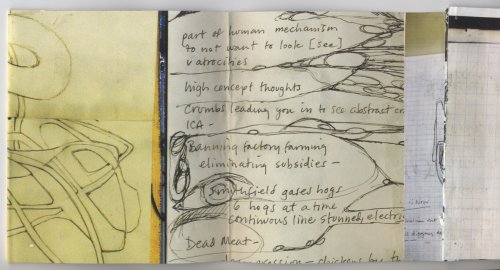 part of human mechanism
to not want to look [see]
atrocities
high concept thoughts
Crumbs leading you in to see abstract
ICA -
Banning factory farming
eliminating subsidies -
Smithfield gases hogs
6 hogs at a time
continuous line stunned, electri
Dead Meat -
chickens